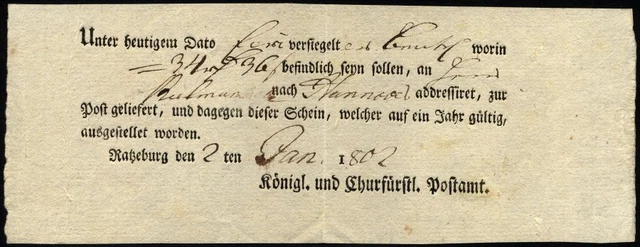 Unter heutigem Dato Ein versiegeltes worin
= 34 36 befindlich seyn sollen, an Herrn
nach Hannover addressiret, zur
Post geliefert, und dagegen dieser Schein, welcher auf ein Jahr gültig,
ausgestellet worden.
Ratzeburg den 2 ten Jan. 1802
Königl. und Churfürstl. Postamt.